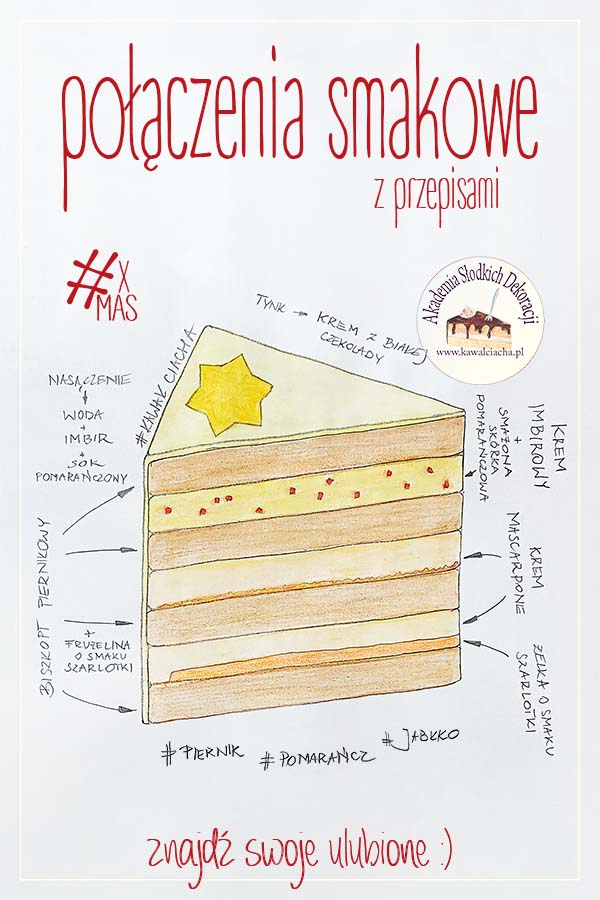 połączenia smakowe
z przepisami
#X
MAS
Akademia Słodkich Dekoracji
www.kawalciacha.pl
TYNK → KREM Z BIAŁEJ
CZEKOLADY
#KAWAŁ CIACHA
NASĄCZENIE
↓
WODA
+
IMBIR
+
SOK
POMARAŃCZOWY
KREM
IMBIROWY
+
SMAŻONA
SKÓRKA
POMARAŃCZOWA
BISZKOPT PIERNIKOWY
KREM
MASCARPONE
+
FRUŻELINA
O SMAKU
SZARLOTKI
ŻELKA O SMAKU
SZARLOTKI
#PIERNIK
#POMARAŃCZ
#JABŁKO
znajdź swoje ulubione :)